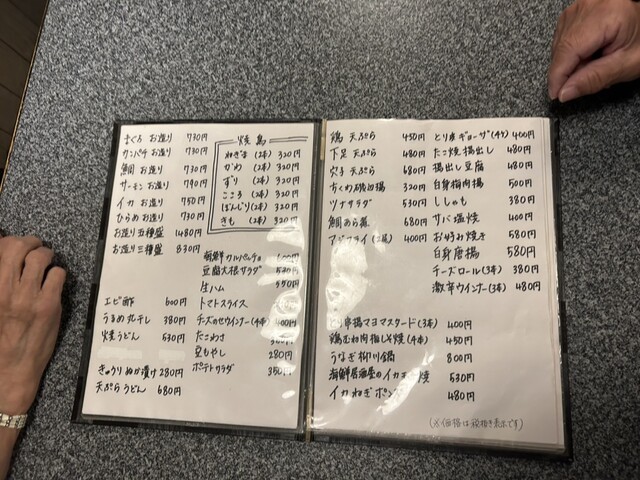 まぐろ お造り 730円
カンパチ お造り 730円
鯛 お造り 730円
サーモン お造り 790円
イカ お造り 750円
ひらめ お造り 730円
お造り五種盛 1480円
お造り三種盛 830円
エビ酢 600円
うるめ丸干し 380円
焼うどん 530円
きゅうりぬか漬け 280円
天ぷらうどん 680円
焼鳥
ねぎま (2本) 320円
かわ (2本) 320円
ずり (2本) 320円
こころ (2本) 320円
ぼんじり(2本) 320円
きも (2本) 320円
海鮮カルパッチョ
豆腐大根サラダ
生ハム 550円
トマトスライス
チーズのせウインナー(4本) 400円
たこわさ
豆もやし 280円
ポテトサラダ 350円
鶏天ぷら 450円
下足天ぷら 480円
穴子天ぷら 680円
ちくわ磯辺揚 320円
ツナサラダ 530円
鯛あら煮 680円
アジフライ(2枚) 400円
とり皮ギョーザ(4ケ) 400円
たこ焼揚出し 480円
揚出し豆腐 480円
白身梅肉揚 500円
ししゃも 380円
サバ塩焼 400円
お好み焼き 580円
白身唐揚 580円
チーズロール(3本) 380円
激辛ウインナー(3本) 480円
串揚マヨマスタード(3本) 400円
鶏むね肉梅しそ焼(4本) 450円
うなぎ柳川鍋 800円
海鮮居酒屋のイカ 焼 530円
イカねぎポン 480円
(※価格は税抜き表示です)